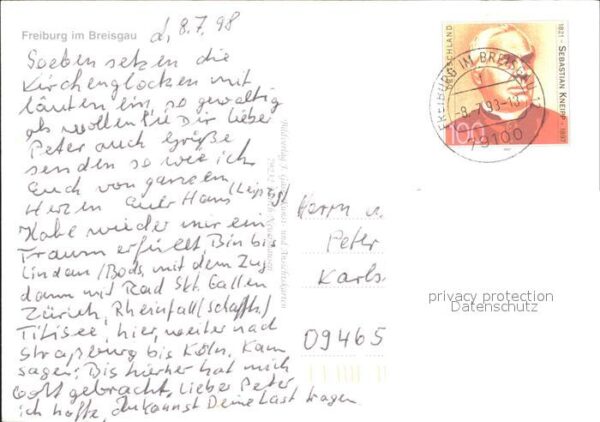 Freiburg im Breisgau
d, 8.7.98
Soeben setzen die
Kirchenglocken mit
läuten ein, so gewaltig
als wollen sie Dir lieber
Peter auch Grüße
senden so wie ich
Euch von ganzem
Herzen Euer Hans (Leipzig)
Habe wieder mir ein
Traum erfüllt. Bin bis
Lindau/Bods. mit dem Zug
dann mit Rad Skt. Gallen
Zürich, Rheinfall (Schaffh.)
Titisee, hier, weiter nach
Straßburg bis Köln. Kann
sagen: Bis hierher hat mich
Gott gebracht. Lieber Peter,
ich hoffe, du kannst Deine Last tragen
Herrn u.
Peter
Karls.
09465
DEUTSCHLAND
100
1821 - SEBASTIAN KNEIPP - 1897
FREIBURG IM BREISGAU
-8.7.98-
79100
privacy protection
Datenschutz